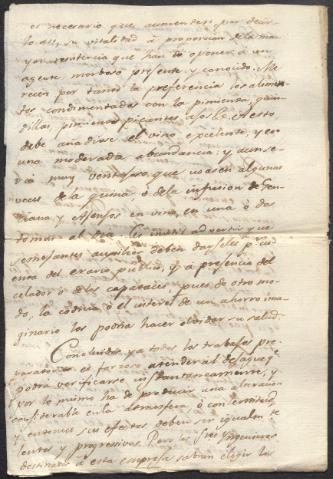 es necesario que aumenten, por decir
lo asi, su vitalidad á proporcion de la ma
yor resistencia que han de oponer á un
agente morboso presente y conocido. Me
recen por tanto la preferencia los alimen
tos condimentados con la pimienta, guin
dillas, pimientos picantes, ajos &c. A esto
debe añadirse el vino excelente, y en
una moderada abundancia; y aun se
rá muy ventajoso que usasen algunas
veces de la quina, ó de la infusion de gen
ciana y agenjos en vino, en una ó dos
tomas al dia. Es inutil advertir que
semejantes auxilios deben darseles p.r cu
enta del erario publico, y á presencia del
celador ó de los capataces, pues de otro mo
do, la codicia ó el interes de un ahorro ima
ginario les podria hacer olvidar su salud.
Concluidos ya todos los trabajos pre
paratorios es forzoso atender al desague, q.e
podrá verificarse instantaneamente; y
por lo mismo ha de producir una alteracion
considerable en la atmosfera, ó con lentitud
y entonces sus efectos deben ser igualm.te
lentos y progresivos. Pero los Sres Ingenieros
destinados á esta empresa sabrán elegir los